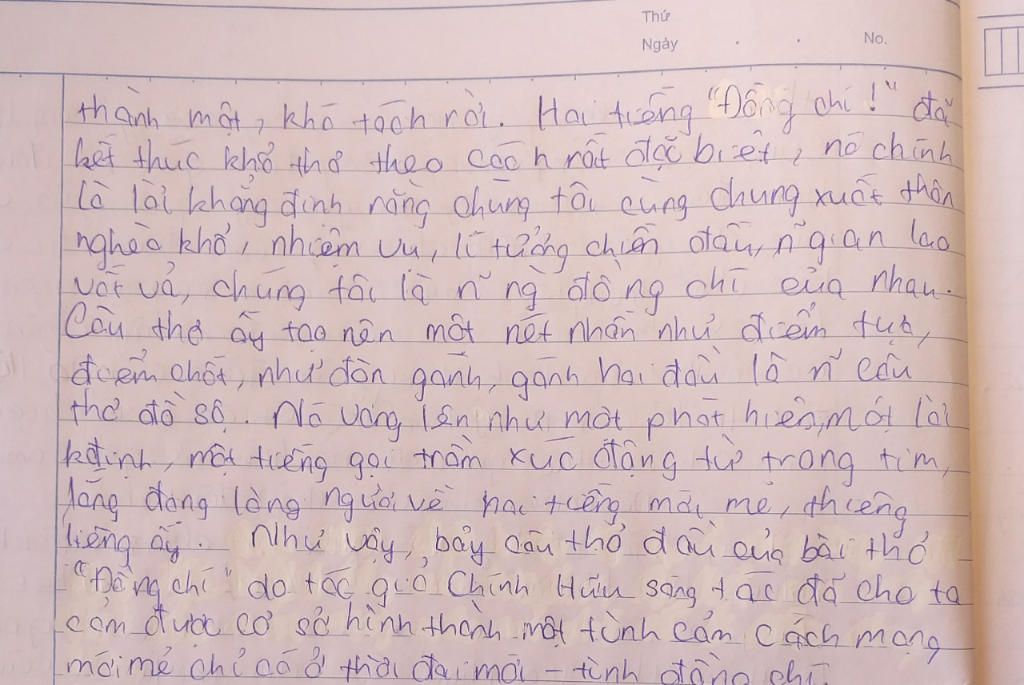 Thứ
Ngày . . No.
thành một, khó tách rời. Hai tiếng "Đồng chí!" đã
kết thúc khổ thơ theo cách rất đặc biệt, nó chính
là lời khẳng định rằng chúng tôi cùng chung xuất thân
nghèo khổ, nhiệm vụ, lí tưởng chiến đấu, ñ gian lao
vất vả, chúng tôi là ñ ng đồng chí của nhau.
Câu thơ ấy tạo nên một nét nhấn như điểm tựa,
điểm chốt, như đòn gánh, gánh hai đầu là ñ câu
thơ đồ sộ. Nó vang lên như một phát hiện, một lời
kđịnh, một tiếng gọi trầm xúc động từ trong tim,
lắng đọng lòng người về hai tiếng mới mẻ, thiêng
liêng ấy. Như vậy, bảy câu thơ đầu của bài thơ
"Đồng chí" do tác giả Chính Hữu sáng tác đã cho ta
cảm được cơ sở hình thành một tình cảm cách mạng
mới mẻ chỉ có ở thời đại mới – tình đồng chí.